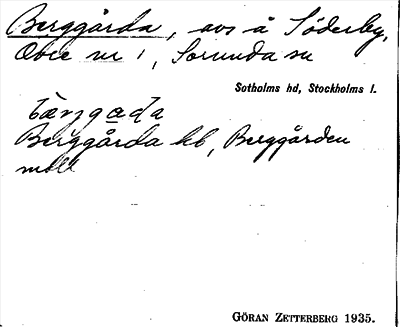 Berggårda, avs å Söderby,
Obee nr 1, Sorunda sn
Sotholms hd, Stockholms l.
bærjgaḍa
Berggårda hb, Berggården
mdll
GÖRAN ZETTERBERG 1935.